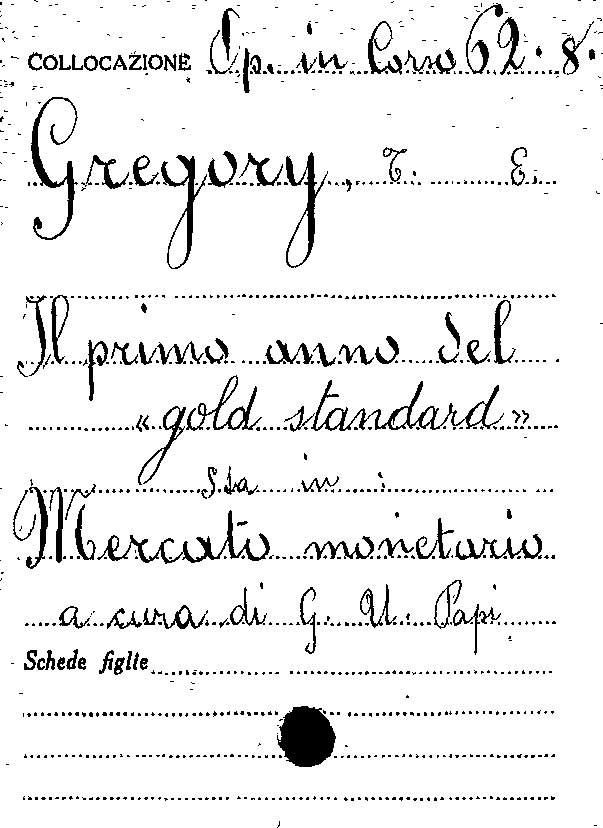 COLLOCAZIONE Op. in Corso 62. 8.
Gregory, T. E.
Il primo anno del
« gold standard »
sta in :
Mercato monetario
a cura di G. U. Papi
Schede figlie